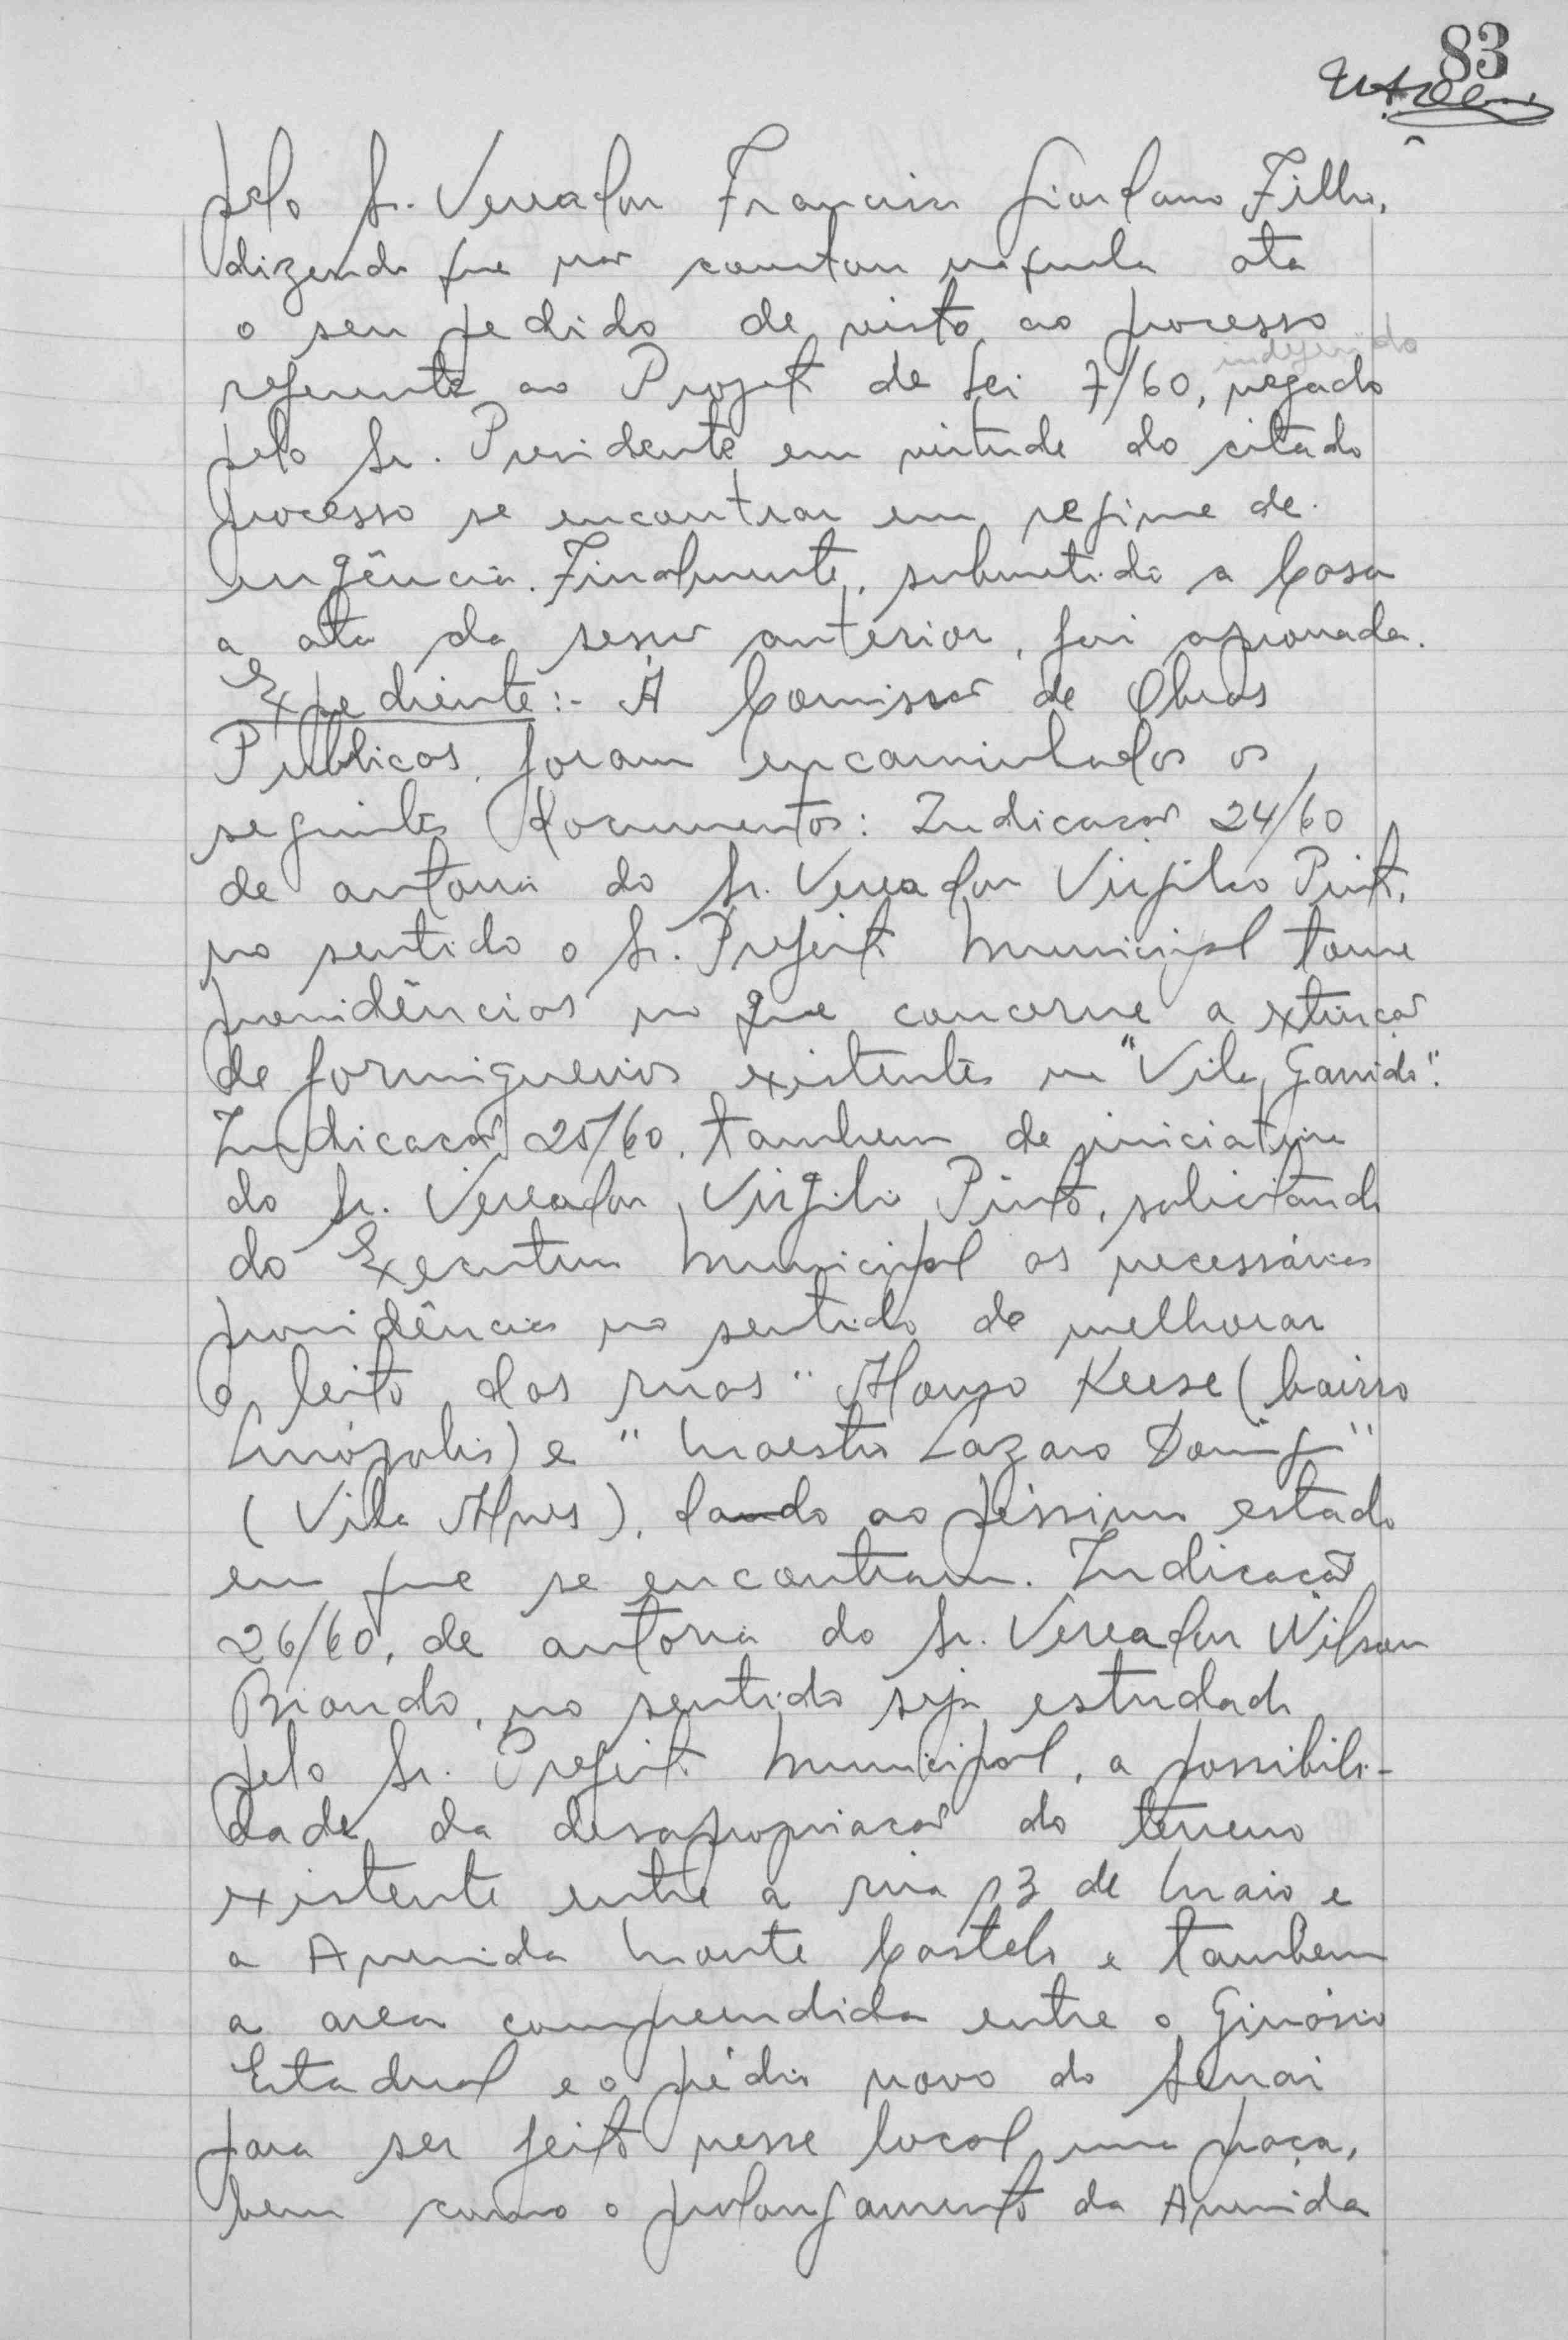 83
pelo Sr. Vereador Francisco Giordano Filho,
dizendo que não constou naquela ata
o seu pedido de visto ao processo
indeferido
referente ao Projeto de Lei 7/60, negado
pelo Sr. Presidente em virtude do citado
processo se encontrar em regime de
urgência. Finalmente, submetida a Casa
a ata da sessão anterior, foi aprovada.
Expediente:- À Comissão de Obras
Públicas, foram encaminhados os
seguintes documentos: Indicação 24/60
de autoria do Sr. Vereador Virgilio Pinto,
no sentido o Sr. Prefeito Municipal tome
providências no que concerne a extinção
de formigueiros existentes na "Vila Garrido".
Indicação 25/60, tambem de iniciativa
do Sr. Vereador Virgilio Pinto, solicitando
do Executivo Municipal as necessárias
providências no sentido de melhorar
o leito das ruas "Afonso Keese (bairro
Linópolis) e "Maestro Lazaro Doming"
(Vila Alves), dando ao péssimo estado
em que se encontram. Indicação
26/60, de autoria do Sr. Vereador Wilson
Briando, no sentido seja estudado
pelo Sr. Prefeito Municipal, a possibili-
dade da desapropriação do terreno
existente entre a rua 13 de Maio e
a Avenida Monte Castelo e tambem
a area compreendida entre o Ginásio
Estadual e o prédio novo do Senai
para ser feito nesse local uma praça,
bem como o prolongamento da Avenida